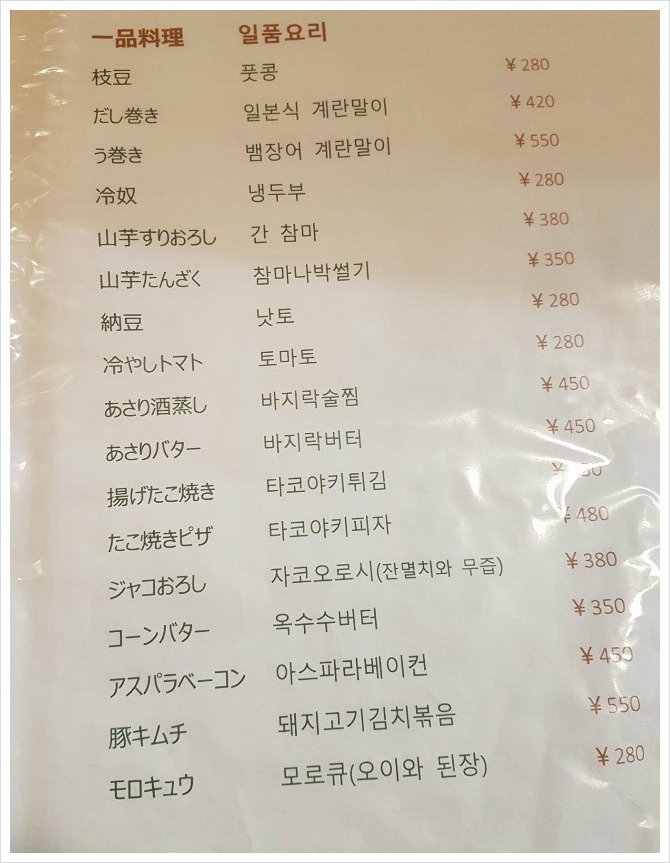 一品料理 일품요리
枝豆 풋콩 ¥280
だし巻き 일본식 계란말이 ¥420
う巻き 뱀장어 계란말이 ¥550
冷奴 냉두부 ¥280
山芋すりおろし 간 참마 ¥380
山芋たんざく 참마나박썰기 ¥350
納豆 낫토 ¥280
冷やしトマト 토마토 ¥280
あさり酒蒸し 바지락술찜 ¥450
あさりバター 바지락버터 ¥450
揚げたこ焼き 타코야키튀김
たこ焼きピザ 타코야키피자 ¥480
ジャコおろし 자코오로시(잔멸치와 무즙) ¥380
コーンバター 옥수수버터 ¥350
アスパラベーコン 아스파라베이컨 ¥450
豚キムチ 돼지고기김치볶음 ¥550
モロキュウ 모로큐(오이와 된장) ¥280